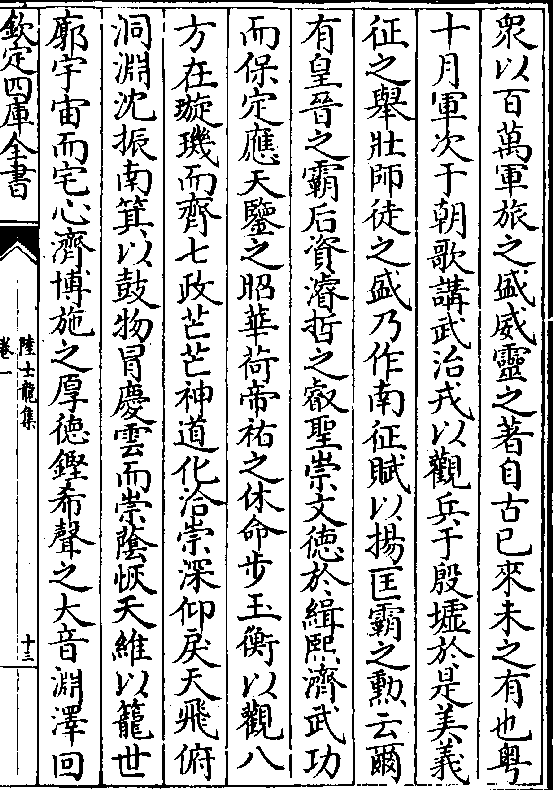 衆以百萬軍旅之盛威靈之著自古已來未之有也粤
十月軍次于朝歌講武治戎以觀兵于殷墟於是美義
征之舉壯師徒之盛乃作南征賦以揚匡霸之勲云爾
有皇晉之霸后資濬哲之叡聖崇文德於緝熙濟武功
而保定應天鑒之昭華荷帝祐之休命步玉衡以觀八
方在璇璣而齊七政芒芒神道化洽崇深仰戾天飛俯
洞淵沈振南箕以鼓物冐慶雲而崇䕃恢天維以籠世
廓宇宙而宅心濟博施之厚德鏗希聲之大音淵澤回
欽定四庫全書
陸士龍集
卷一
十三